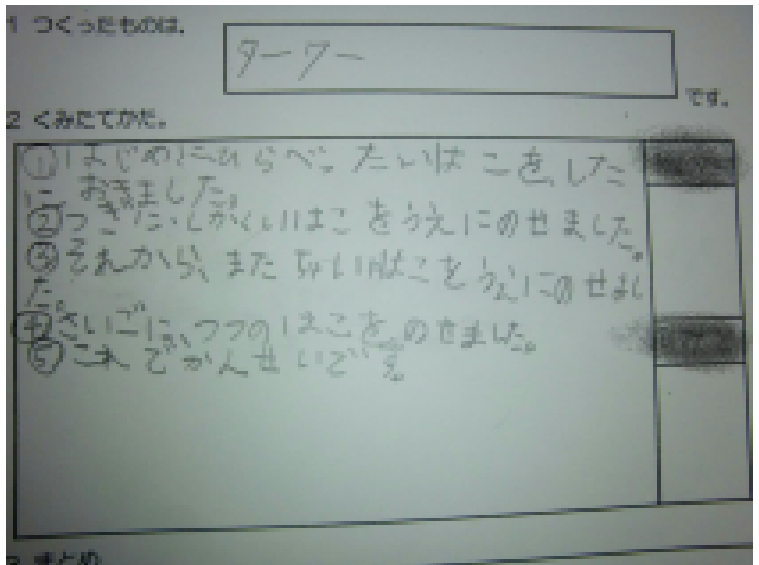 1 つくったものは、
タワー
です。
2 くみたてかた。
①はじめにひらべったいはこをした
に、おきました。
②つぎに、しかくいはこをうえにのせました。
③それから、また いはこをうえにのせまし
た。
④さいごに、つつのはこを。のせました。
⑤これでかんせいです。
まとめ